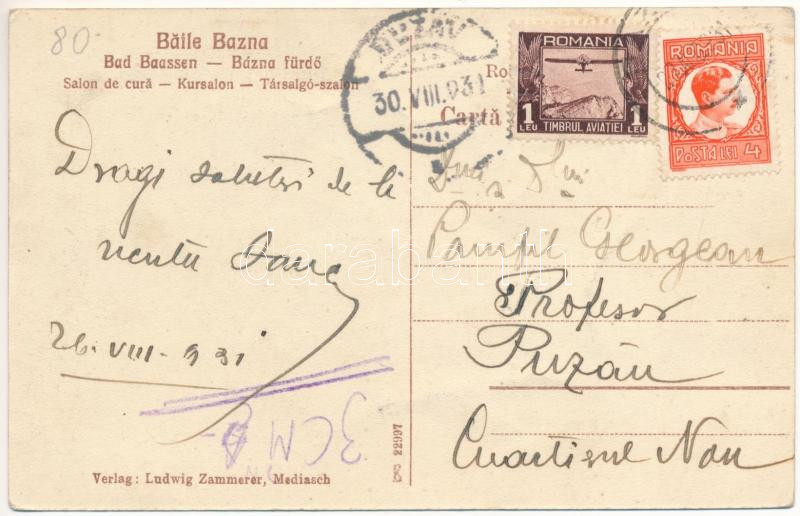 80
Băile Bazna
Bad Baassen — Bázna fürdő
Salon de cură — Kursalon — Társalgó-szalon
BUZAU
30.VIII.931
Ro
Cartă
ROMANIA
1 LEU TIMBRUL AVIATIEI 1 LEU
ROMANIA
POSTA LEI 4
Dragi salutări de la
26-VIII-931
Pamfil Georgean
Profesor
Buzău
Cuartierul Nou
3CM
22997
Verlag: Ludwig Zammerer, Mediasch
darabanth